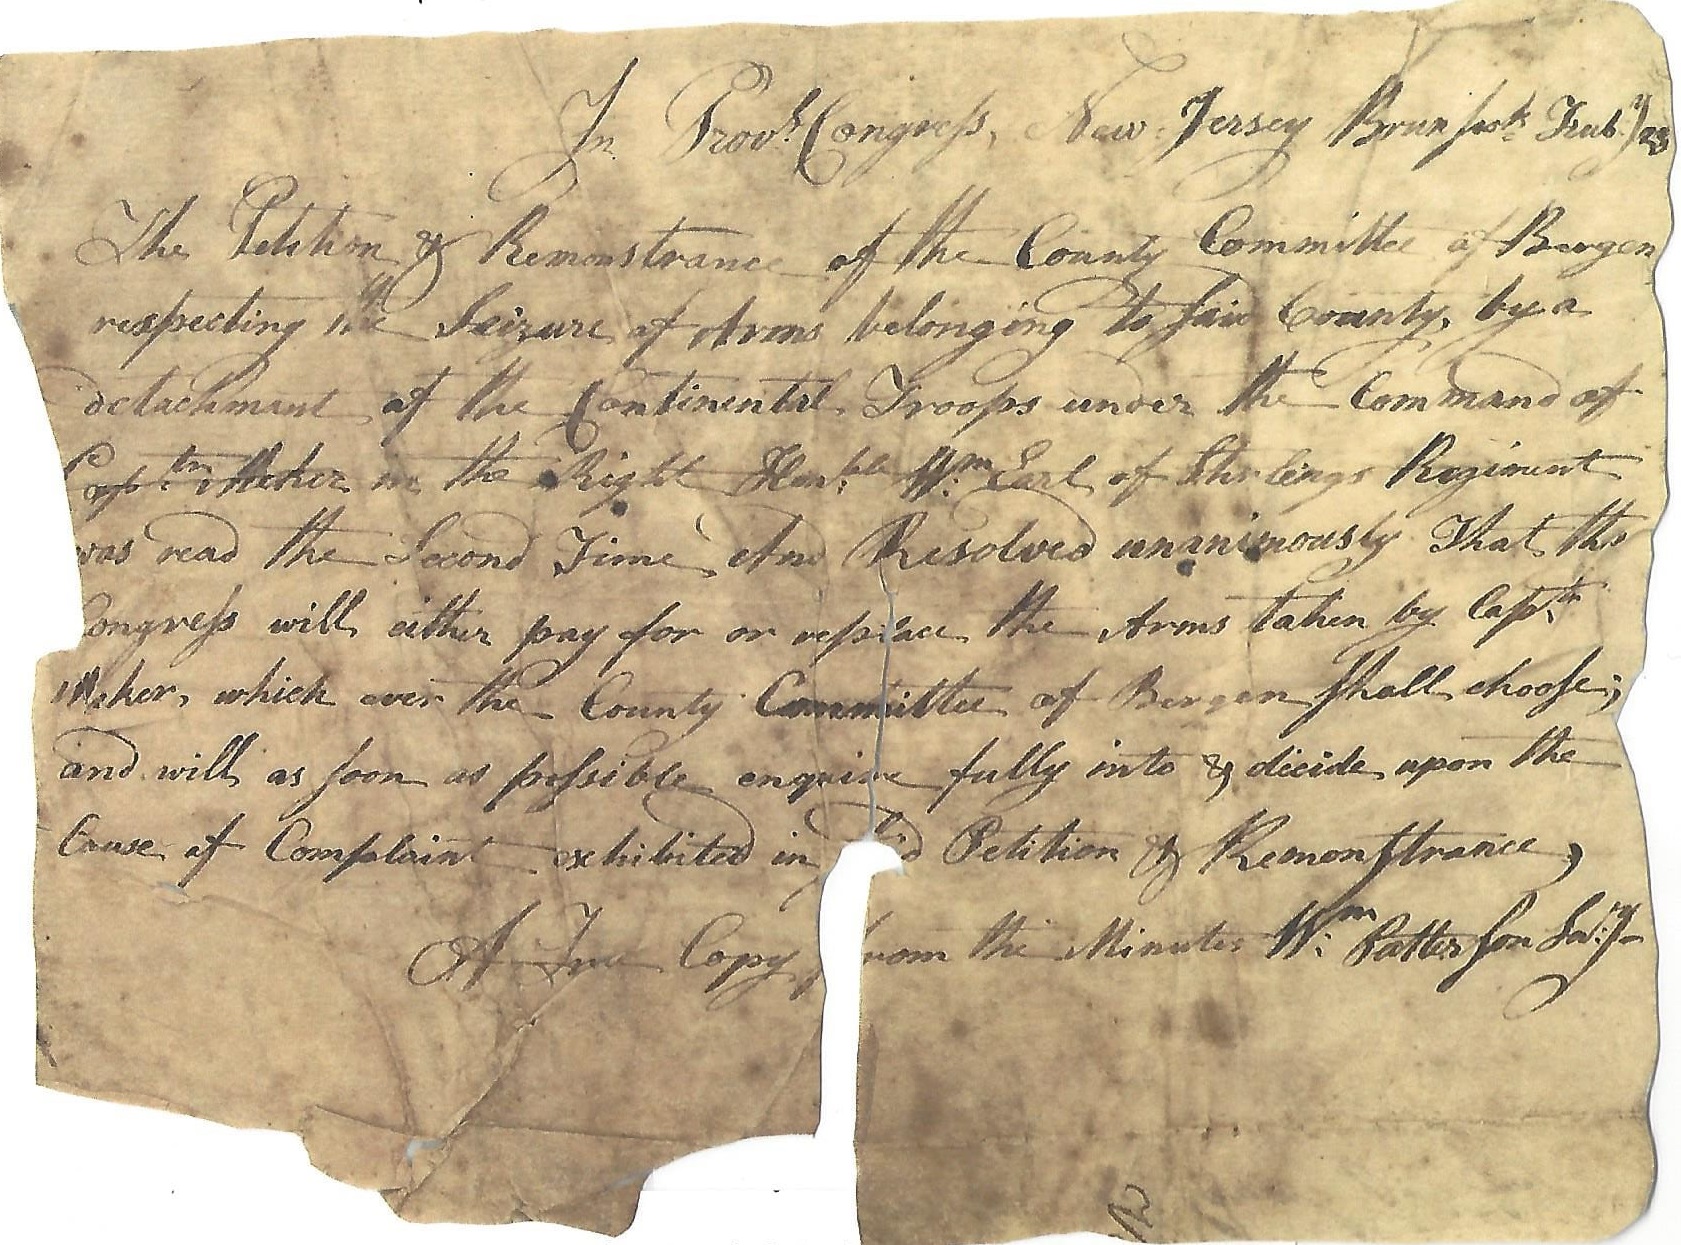 In Provl. Congress, New-Jersey Brunswk. Feub.y
The Petition & Remonstrance of the County Committee of Bergen
respecting the Seizure of Arms belonging to said County, by a
detachmant of the Continental Troops under the Command of
Captn. Meker in the Right Hon.ble Wm. Earl of Stirlings Regiment
was read the Second Time, And Resolved unanimously That this
Congress will either pay for or replace the Arms taken by Captn.
Meker, which ever the County Committee of Bergen shall choose;
and will as soon as possible enquire fully into & dicide upon the
Cause of Complaint exhibited in Petition & Remonstrance,
A True Copy from the Minutes Wm. Patterson Sec.y